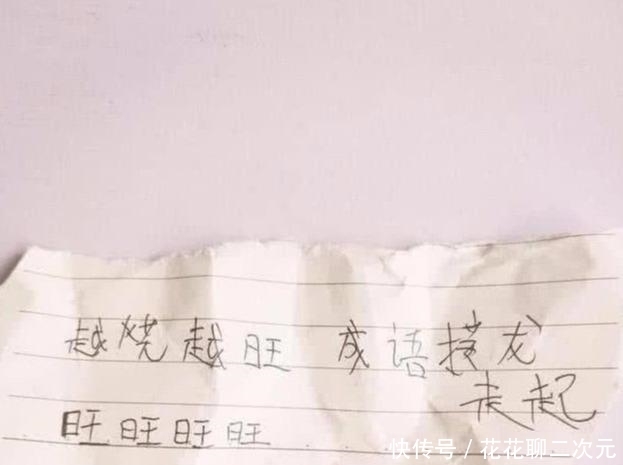 越烧越旺 成语接龙
走起
旺旺旺旺
快传号／花花聊二次元